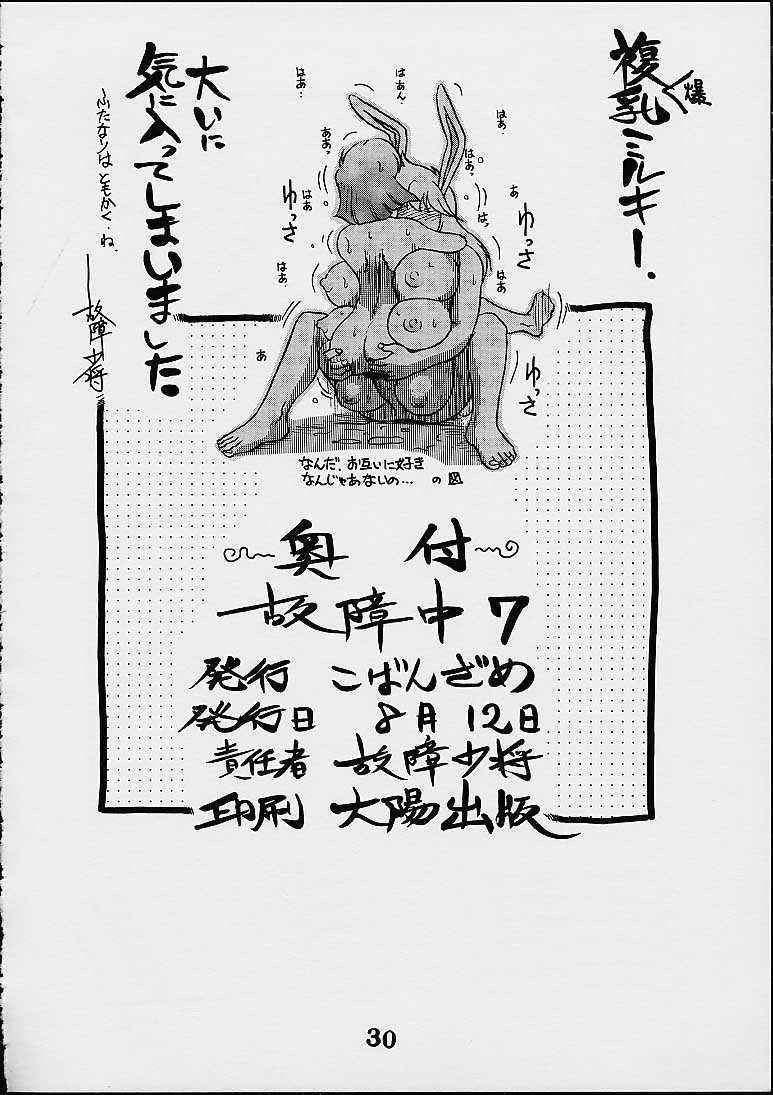 複乳ミルキー、
爆
大いに
気に入ってしまいました。
〜ふたなりはともかく、ね、
故障少将
はあ…
はあん。
はあ…
ああっ
はあっ
はあ
あ
はっ
ゆっさ
ゆっさ
はあ…
はあ
あ
ゆっさ
なんだ、お互いに好き
なんじゃあないの… の図
奥付
故障中7
発行 こばんざめ
発行日 8月12日
責任者 故障少将
印刷 大陽出版
30